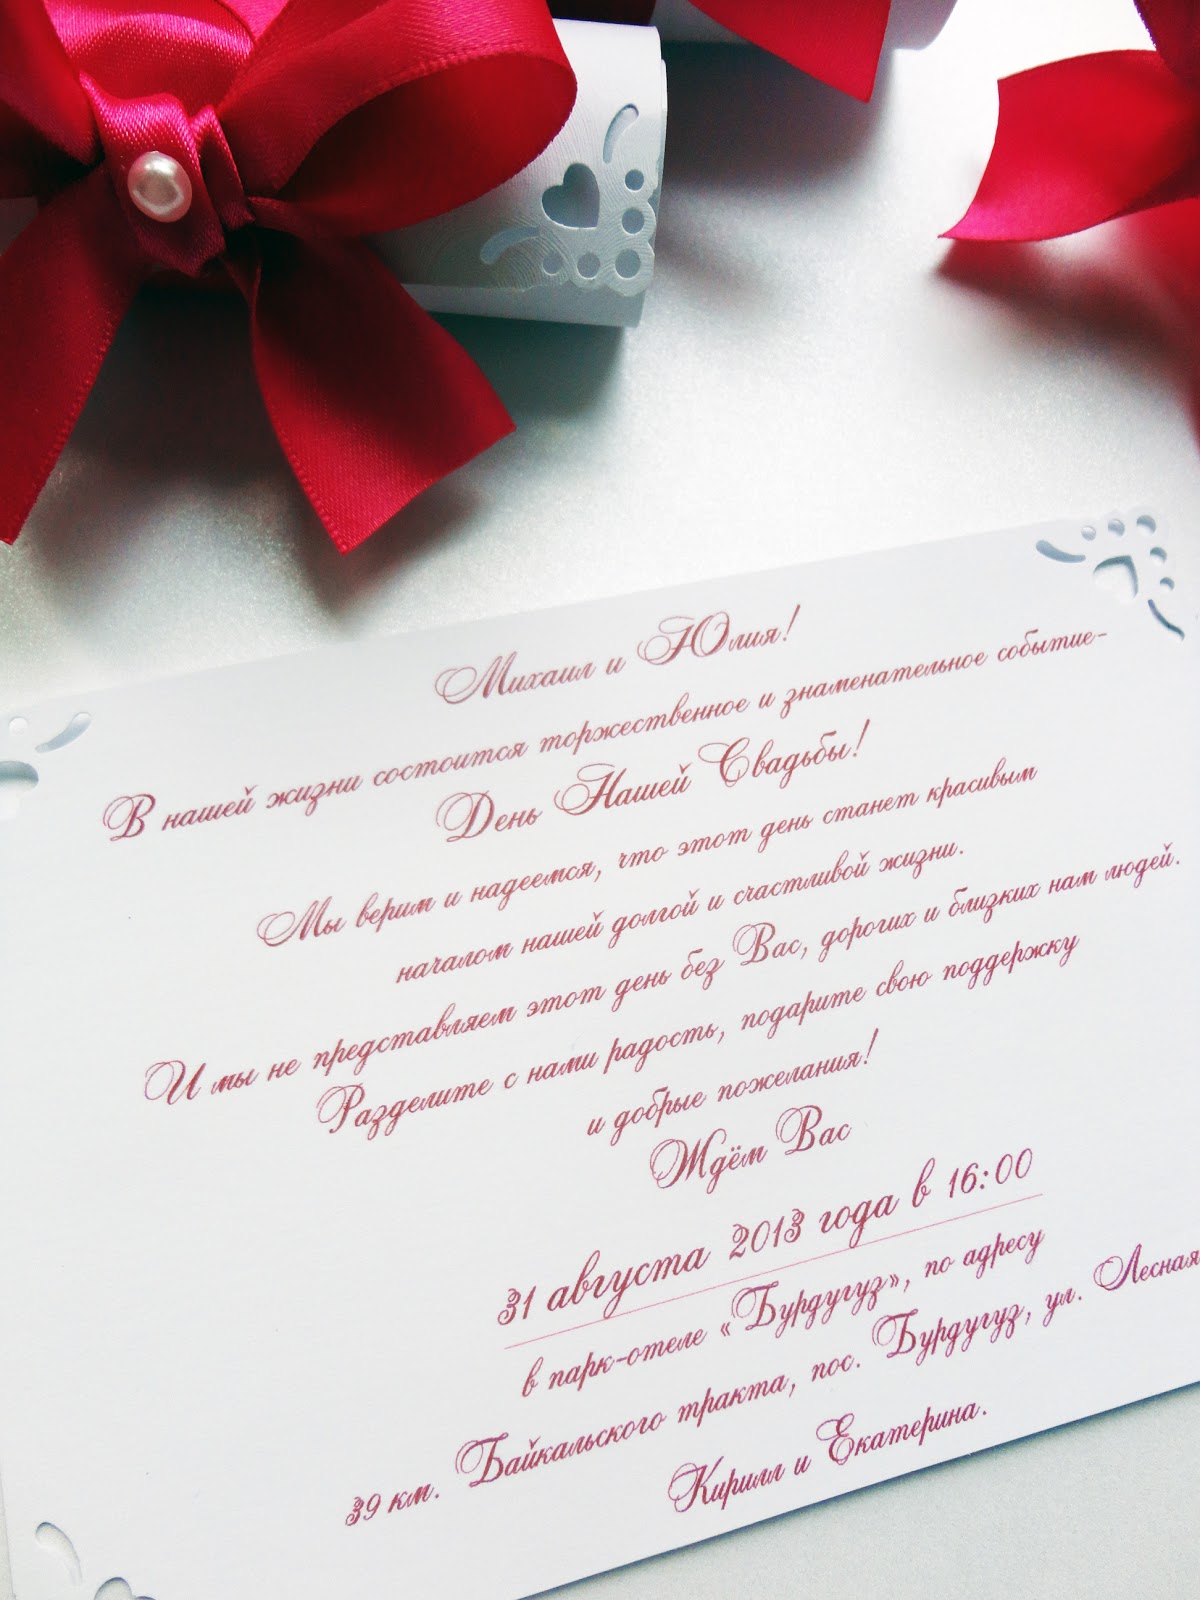 Михаил и Юлия!
В нашей жизни состоится торжественное и знаменательное событие-
День Нашей Свадьбы!
Мы верим и надеемся, что этот день станет красивым
началом нашей долгой и счастливой жизни.
И мы не представляем этот день без Вас, дорогих и близких нам людей.
Разделите с нами радость, подарите свою поддержку
и добрые пожелания!
Ждём Вас
31 августа 2013 года в 16:00
в парк-отеле «Бурдугуз», по адресу
39 км. Байкальского тракта, пос. Бурдугуз, ул. Лесная
Кирилл и Екатерина.